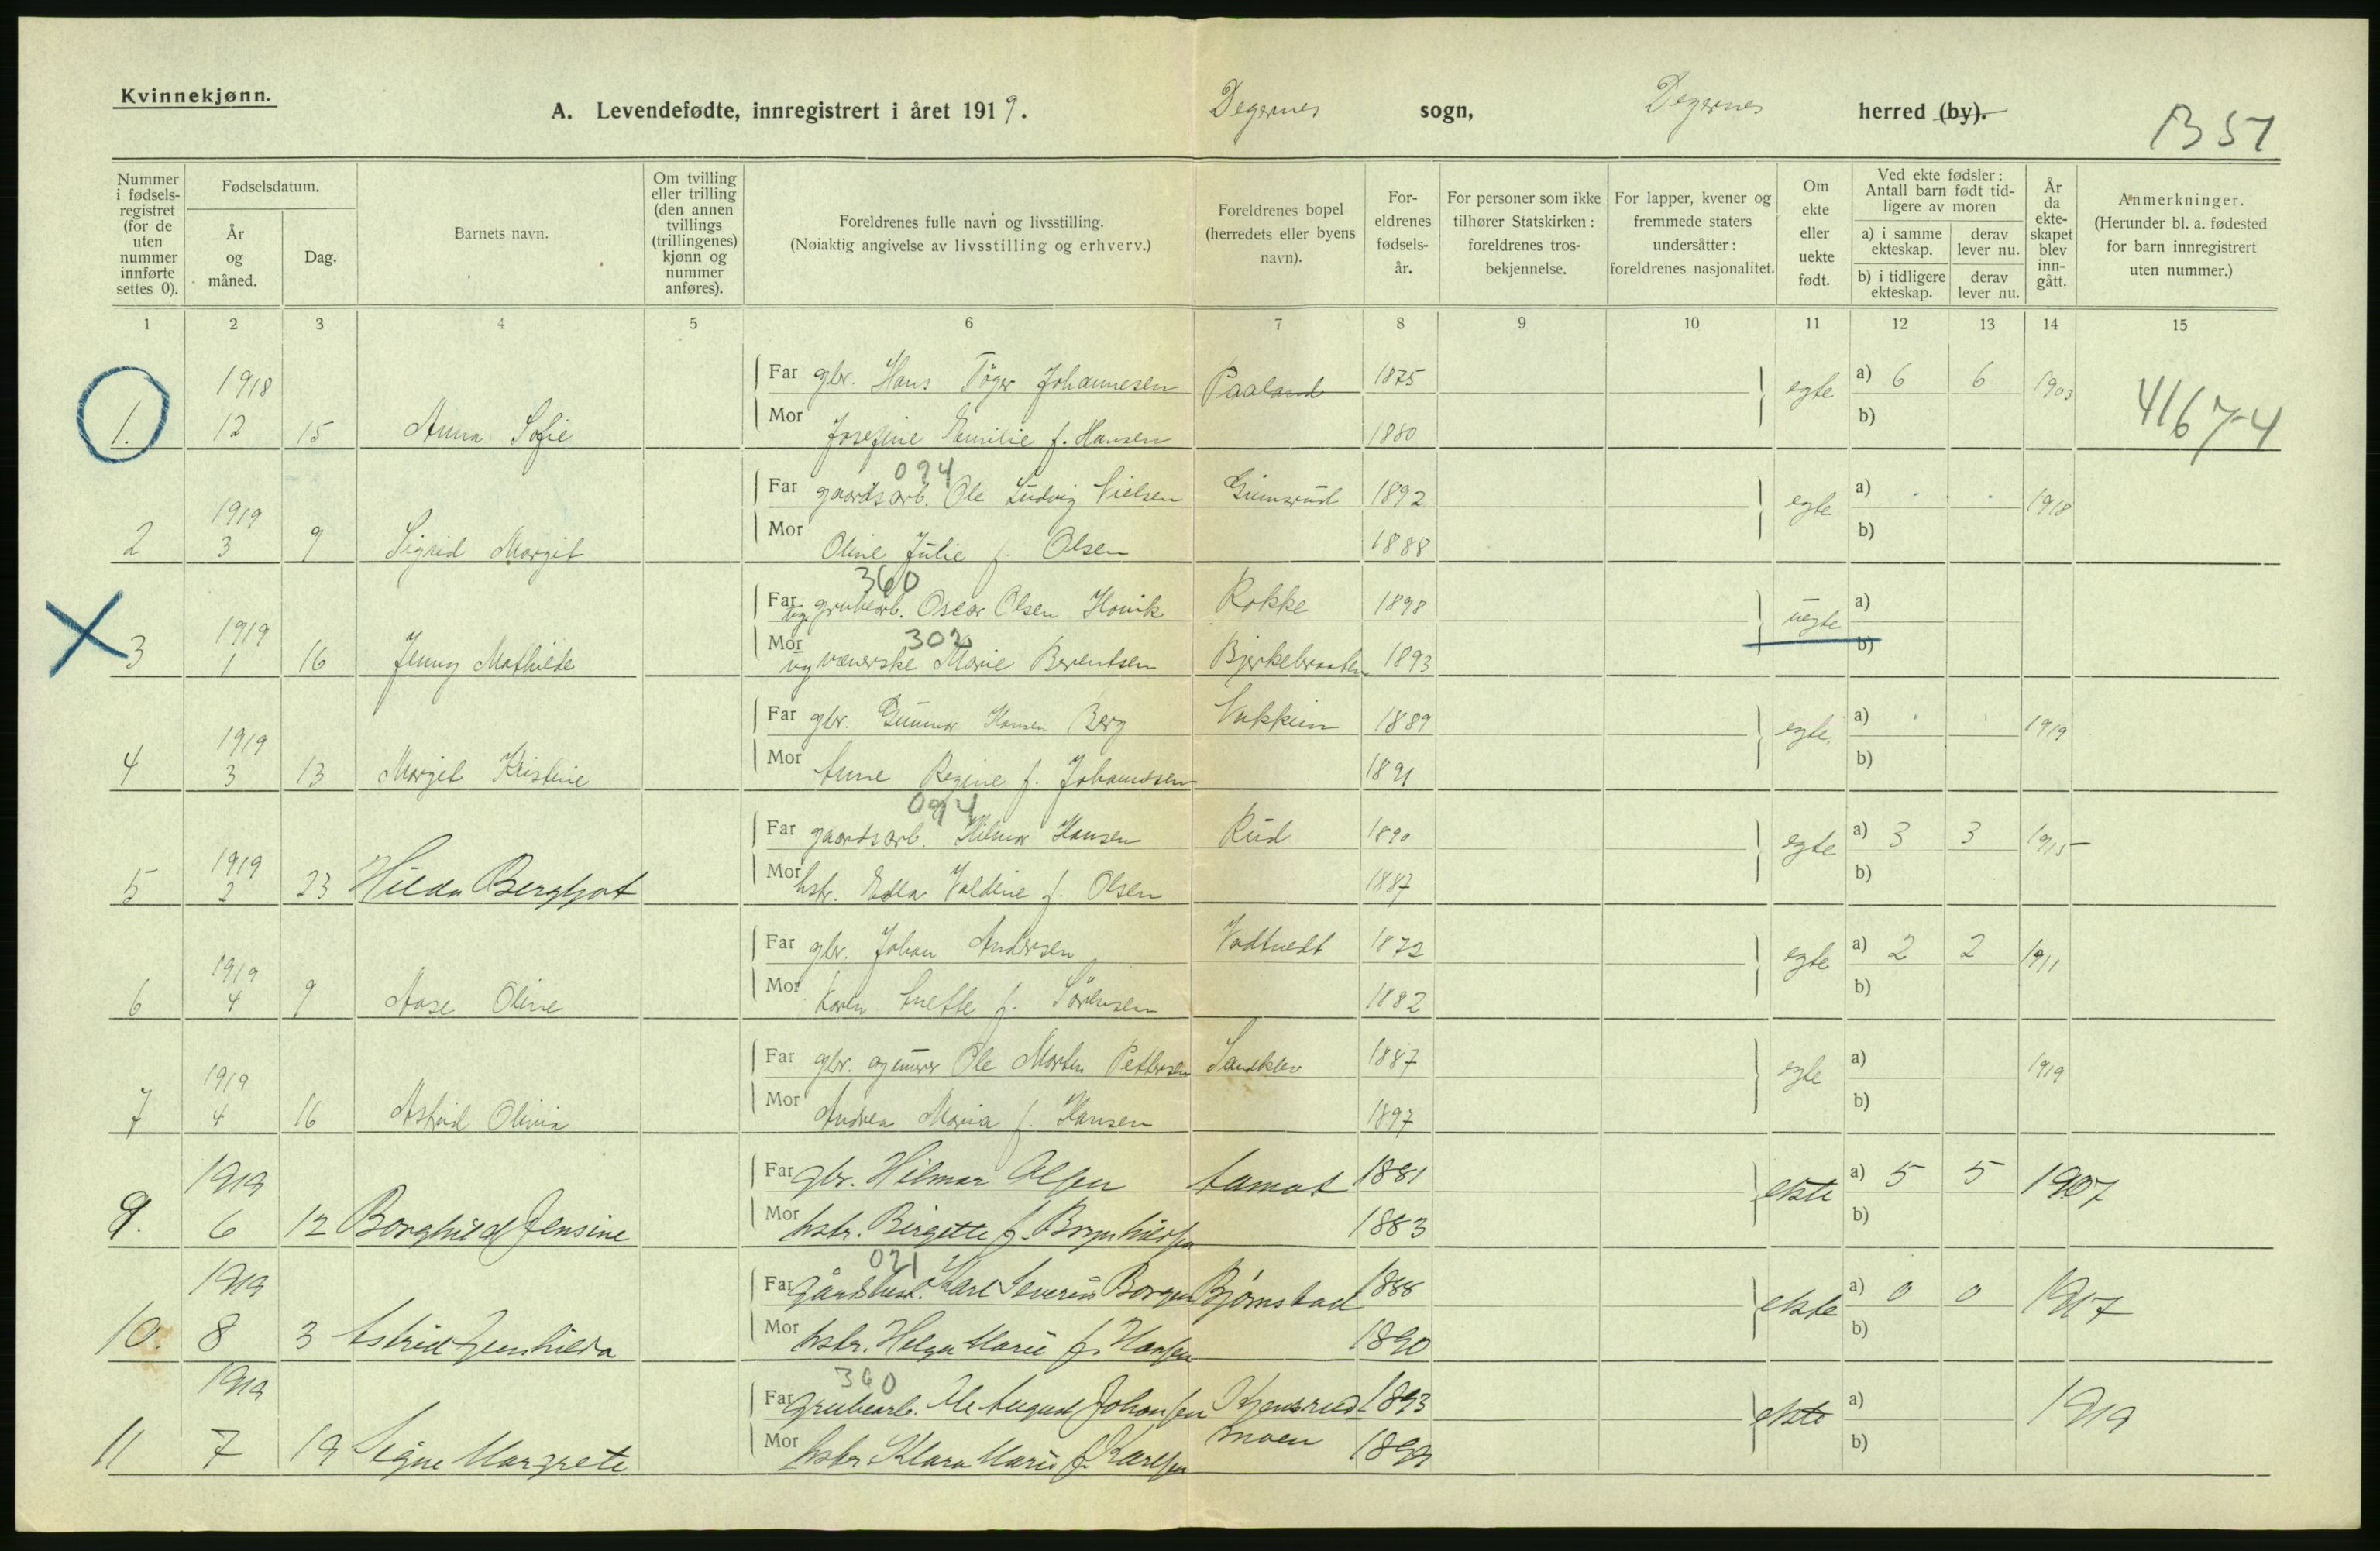 Kvinnekjønn.
A. Levendefødte, innregistrert i året 1919. Degernes sogn, Degernes herred (by).
B 51
Nummer i fødselsregistret (for de uten nummer innførte settes 0).
Fødselsdatum.
År og måned.
Dag.
Barnets navn.
Om tvilling eller trilling (den annen tvillings (trillingenes) kjønn og nummer anføres).
Foreldrenes fulle navn og livsstilling.
(Nøiaktig angivelse av livsstilling og erhverv.)
Foreldrenes bopel (herredets eller byens navn).
Foreldrenes fødselsår.
For personer som ikke tilhører Statskirken: foreldrenes trosbekjennelse.
For lapper, kvener og fremmede staters undersåtter: foreldrenes nasjonalitet.
Om ekte eller uekte født.
Ved ekte fødsler: Antall barn født tidligere av moren
a) i samme ekteskap.
derav lever nu.
b) i tidligere ekteskap.
derav lever nu.
År da ekteskapet blev inngått.
Anmerkninger.
(Herunder bl. a. fødested for barn innregistrert uten nummer.)
1 2 3 4 5 6 7 8 9 10 11 12 13 14 15
1918 Far gbr. Hans Töger Johannesen Paaland 1875 egte a) 6 6 1903
1. 12 15 Anna Sofie Mor Josefine Emilie f. Hansen 1880 b) 4167-4
024
1919 Far gaardsarb. Ole Ludvig Nielsen Gimsrud 1892 egte a) 1918
2 3 9 Sigrid Margit Mor Oline Julie f. Olsen 1888 b)
360
1919 Far ug. grubearb. Oscar Olsen Hovik Rokke 1898 uegte a)
302
3 1 16 Jenny Mathilde Mor ug væverske Marie Berentsen Bjerkebraaten 1893 b)
1919 Far gbr. Gunnar Hansen Berg 1889 egte. a) 1919
4 3 13 Margit Kristine Mor Anne Regine f. Johannssen 1891 b)
094
1919 Far gaardsarb. Hilmar Hansen Rud 1890 egte a) 3 3 1915
5 2 23 Hilda Bergljot Mor hstr. Edla Valdine f. Olsen 1887 b)
1919 Far gbr. Johan Andersen Vadtvedt 1872 egte a) 2 2 1911
6 4 9 Aase Oline Mor Karen Anette f. Sörensen 1882 b)
1919 Far gbr. og murer Ole Morten Pettersen Sandklev 1887 egte a) 1919
7 4 16 Astrid Olivia Mor Andrea Maria f. Hansen 1897 b)
1919 Far gbr. Hilmar Olsen 1881 ekte a) 5 5 1907
9. 6 12 Borghild Jensine Mor hstr. Birgitte f. 1883 b)
021
1919 Far Karl Severin Borgen Bjørnstad 1888 ekte a) 0 0 1917
10. 8 3 Astrid Gunhilda Mor hstr. Helga Marie f. Hansen 1890 b)
360
1919 Far Grubearb. Ole August Johansen Kjensrud 1893 ekte a) 1919
11 7 19 Signe Margrete Mor hstr Klara Marie f. Karlsen moen 1899 b)